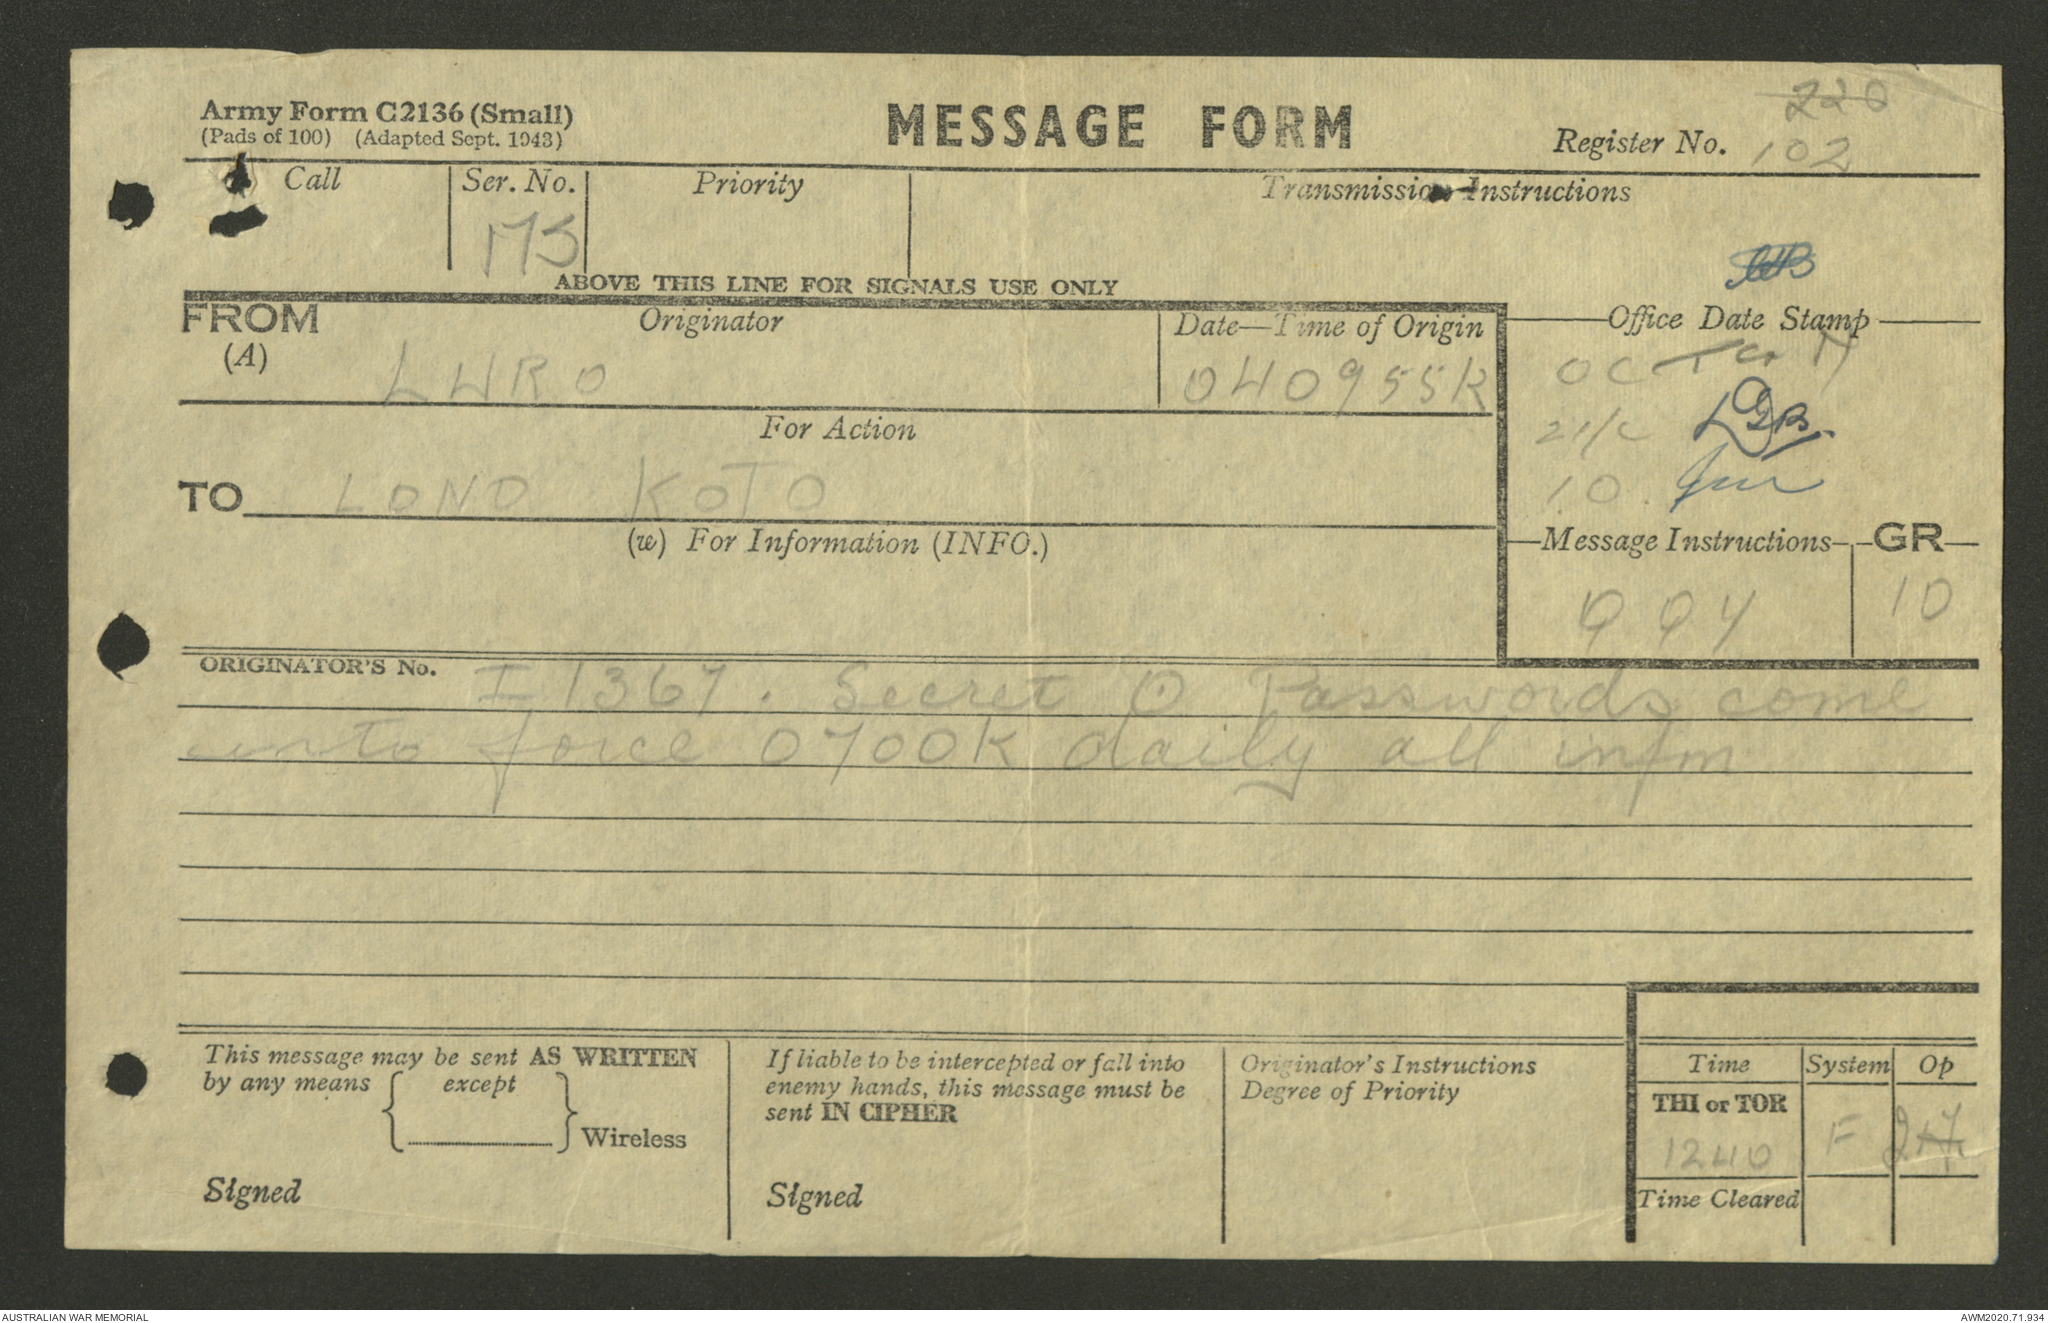 Army Form C2136 (Small)
(Pads of 100) (Adapted Sept. 1943)
MESSAGE FORM
220
Register No. 102
Call
Ser. No.
Priority
Transmission Instructions
175
ABOVE THIS LINE FOR SIGNALS USE ONLY
FROM
(A)
Originator
Date—Time of Origin
Office Date Stamp
LWRO
040955K
For Action
TO LONO KOTO
10.
(w) For Information (INFO.)
Message Instructions
GR
QQY
10
ORIGINATOR'S No. I 1367. Secret O Passwords come
into force 0700K daily all infm
This message may be sent AS WRITTEN
by any means { except } Wireless
Signed
If liable to be intercepted or fall into
enemy hands, this message must be
sent IN CIPHER
Signed
Originator's Instructions
Degree of Priority
Time
System
Op
THI or TOR
1240
F
Time Cleared
AUSTRALIAN WAR MEMORIAL
AWM2020.71.934